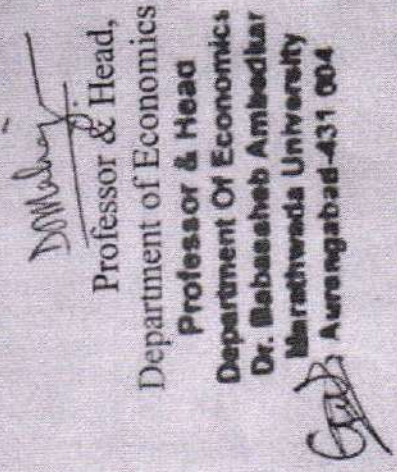 Professor & Head,
Department of Economics
Professor & Head
Department Of Economics
Dr. Babasaheb Ambedkar
Marathwada University
Aurangabad-431 004